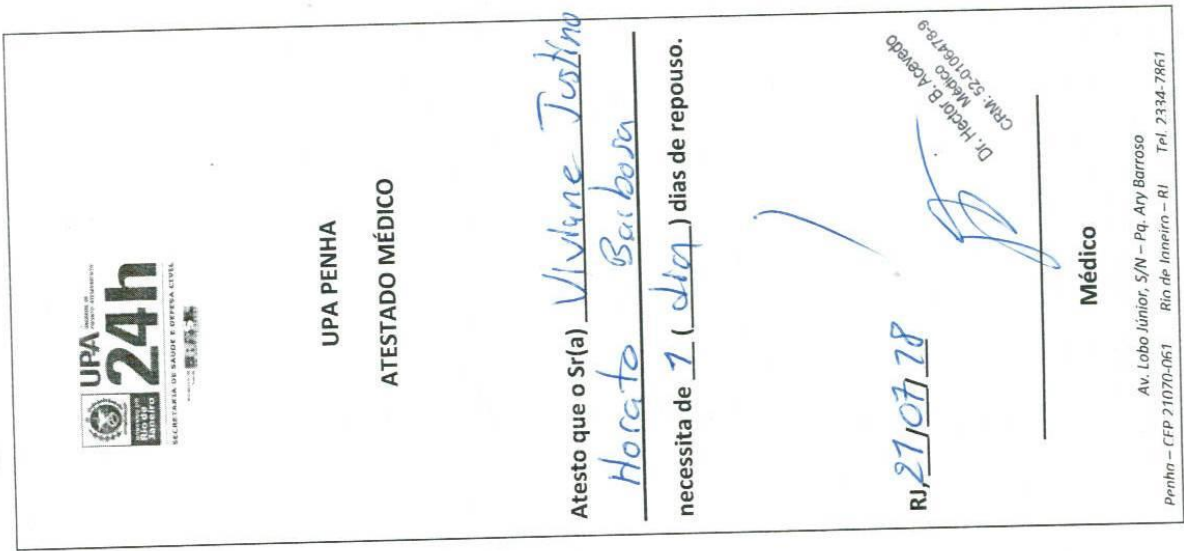 UPA
24h
Rio de
Janeiro
SECRETARIA DE SAÚDE E DEFESA CIVIL
UPA PENHA
ATESTADO MÉDICO
Atesto que o Sr(a) Viviane Justino
Horato Barbosa
necessita de 1 ( dia ) dias de repouso.
RJ, 21/07/18
Dr. Hector B. Acevedo
Médico
CRM: 52-0106478-9
Médico
Av. Lobo Júnior, S/N – Pq. Ary Barroso
Penha – CEP 21070-061 Rio de Janeiro – RJ Tel. 2334-7861